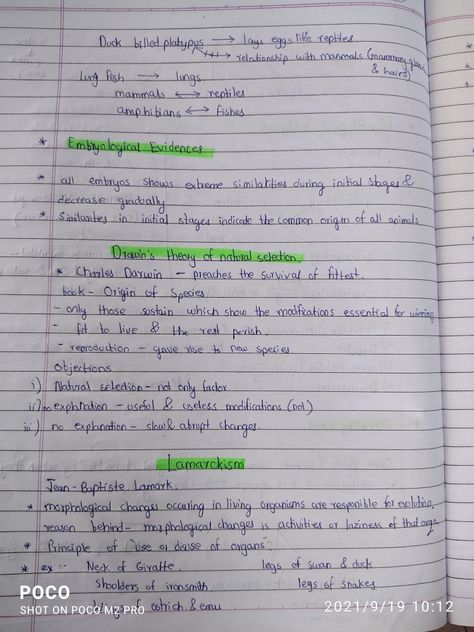 Duck billed platypus → lays eggs like reptiles
→ relationship with mammals (mammary glands
& hairs)
Lung fish → lungs
mammals ↔ reptiles
amphibians ↔ fishes
* Embryological Evidences
* all embryos shows extreme similatities during initial stages &
decrease gradually
* Similarities in initial stages indicate the common origin of all animals.
Drawin's theory of natural selection.
* Charles Darwin - preaches the survival of fittest.
book - Origin of Species
- only those sustain which show the modifications essential for winning
- fit to live & the rest perish.
- reproduction - gave rise to new species
Objections
i) Natural selection - not only factor
ii) no explntation - useful & useless modifications (not)
iii) no explanation - slow & abrupt changes.
Lamarckism
Jean-Baptiste Lamark.
* morphological changes occoring in living organisms are responible for evolution,
reason behind - morphological changes is activities or laziness of that orga
* Principle of "use or disuse of organs".
* ex :- Neck of Giraffe. legs of swan & duck
Shoolders of ironsmith. legs of snakes
of ostrich & emu
POCO
SHOT ON POCO M2 PRO
2021/9/19 10:12